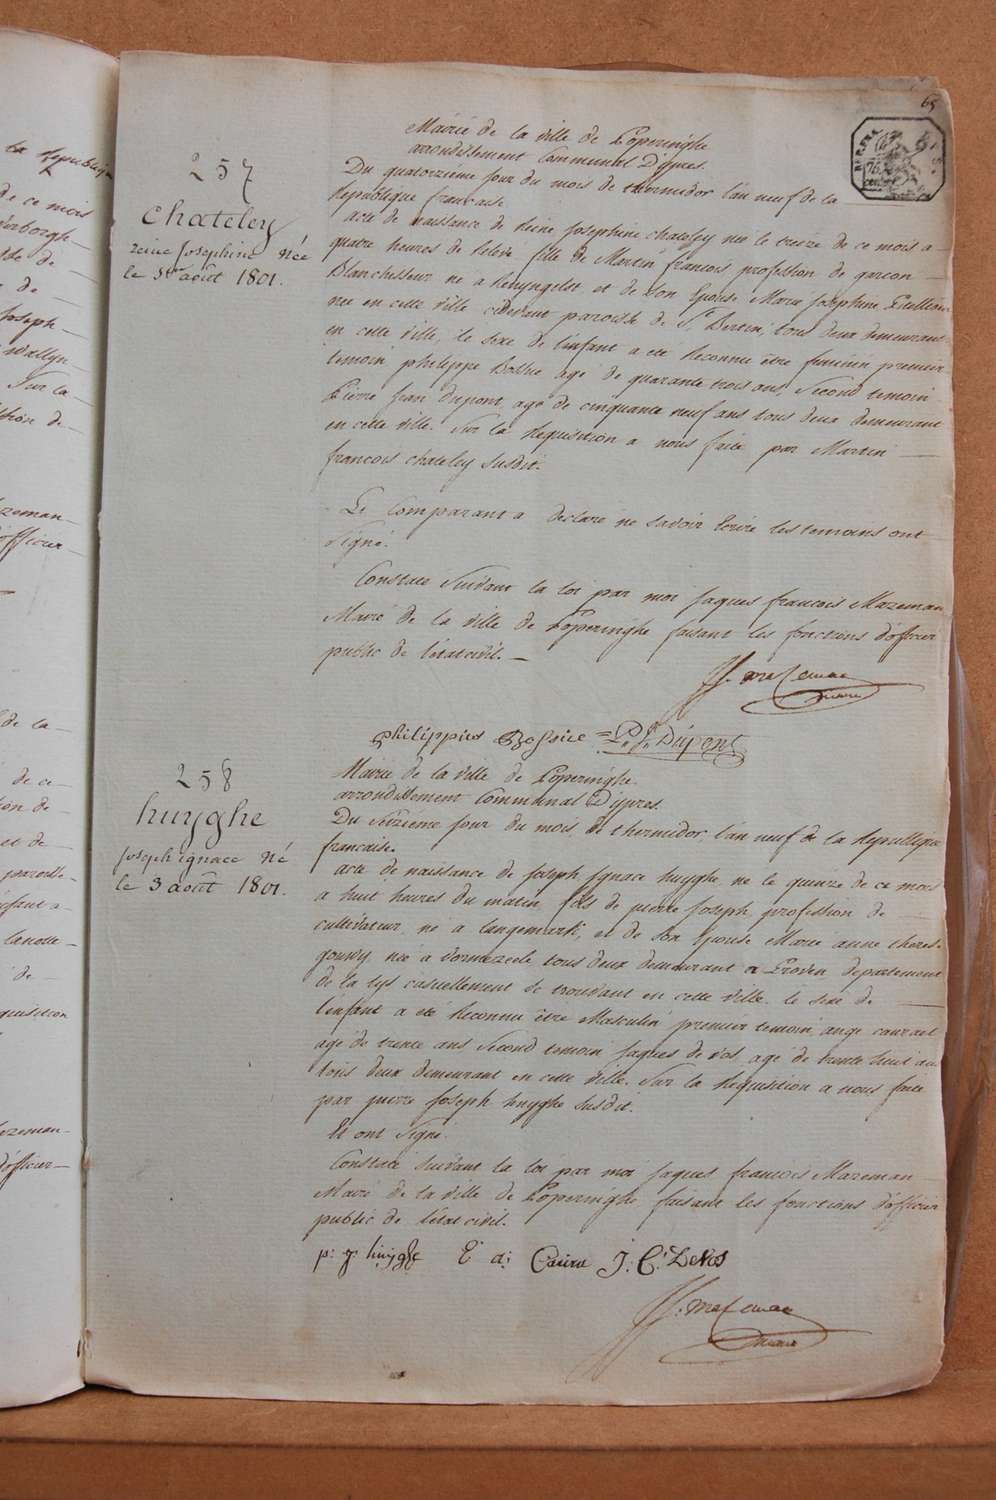 65
257
Chateley
reine Josephine Née
le 1er août 1801.
Mairie de la ville de Poperinghe
arrondissement Communal D'ypres.
Du quatorzieme jour du mois de thermidor l'an neuf de la
Republique francaise
acte de naissance de Reine Josephine chateley née le treize de ce mois a
quatre heures de relevé fille de Martin francois profession de garcon
Blanchisseur né a Renyngelst et de son Epouse Marie Josephine
née en cette ville cidevant paroisse de St Bertin, tous deux demeurans
en cette ville, le sexe de l'enfant a été Reconnu être feminin premier
temoin philippe Bossue agé de quarante trois ans, Second temoin
Pierre Jean dupont agé de cinquante neuf ans tous deux demeurant
en cette ville. Sur la Requisition a nous faite par Martin
francois chateley susdit.
Le Comparant a declaré ne savoir Ecrire les temoins ont
signé.
Constaté Suivant la loi par moi Jaques francois Mazeman
Maire de la ville de Poperinghe faisant les fonctions d'officier
public de l'état civil.
J. f. mazeman
maire
philippus Bossue = P. J. Dupont
258
huyghe
Joseph ignace Né
le 3 août 1801.
Mairie de la ville de Poperinghe
arrondissement Communal D'ypres
Du Seizieme jour du mois de thermidor l'an neuf de la Republique
francaise.
acte de naissance de Joseph Ignace huyghe né le quinze de ce mois
a huit heures du matin, fils de pierre Joseph profession de
cultivateur, né a langemark, et de son Epouse Marie anne therese
gouwy née a vormezeele tous deux demeurant a Proven departement
de la lys casuellement se trouvant en cette ville. le sexe de
l'enfant a été Reconnu être Masculin premier temoin ange
agé de trente ans Second temoin Jaques de vos agé de trente huit ans
tous deux demeurant en cette ville. Sur la Requisition a nous faite
par pierre Joseph huyghe susdit.
Et ont Signé.
Constaté suivant la loi par moi Jaques francois Mazeman
Maire de la ville de Poperinghe faisant les fonctions d'officier
public de l'état civil.
p: J: huyghe J: C: DeVos
J. f. mazeman
maire